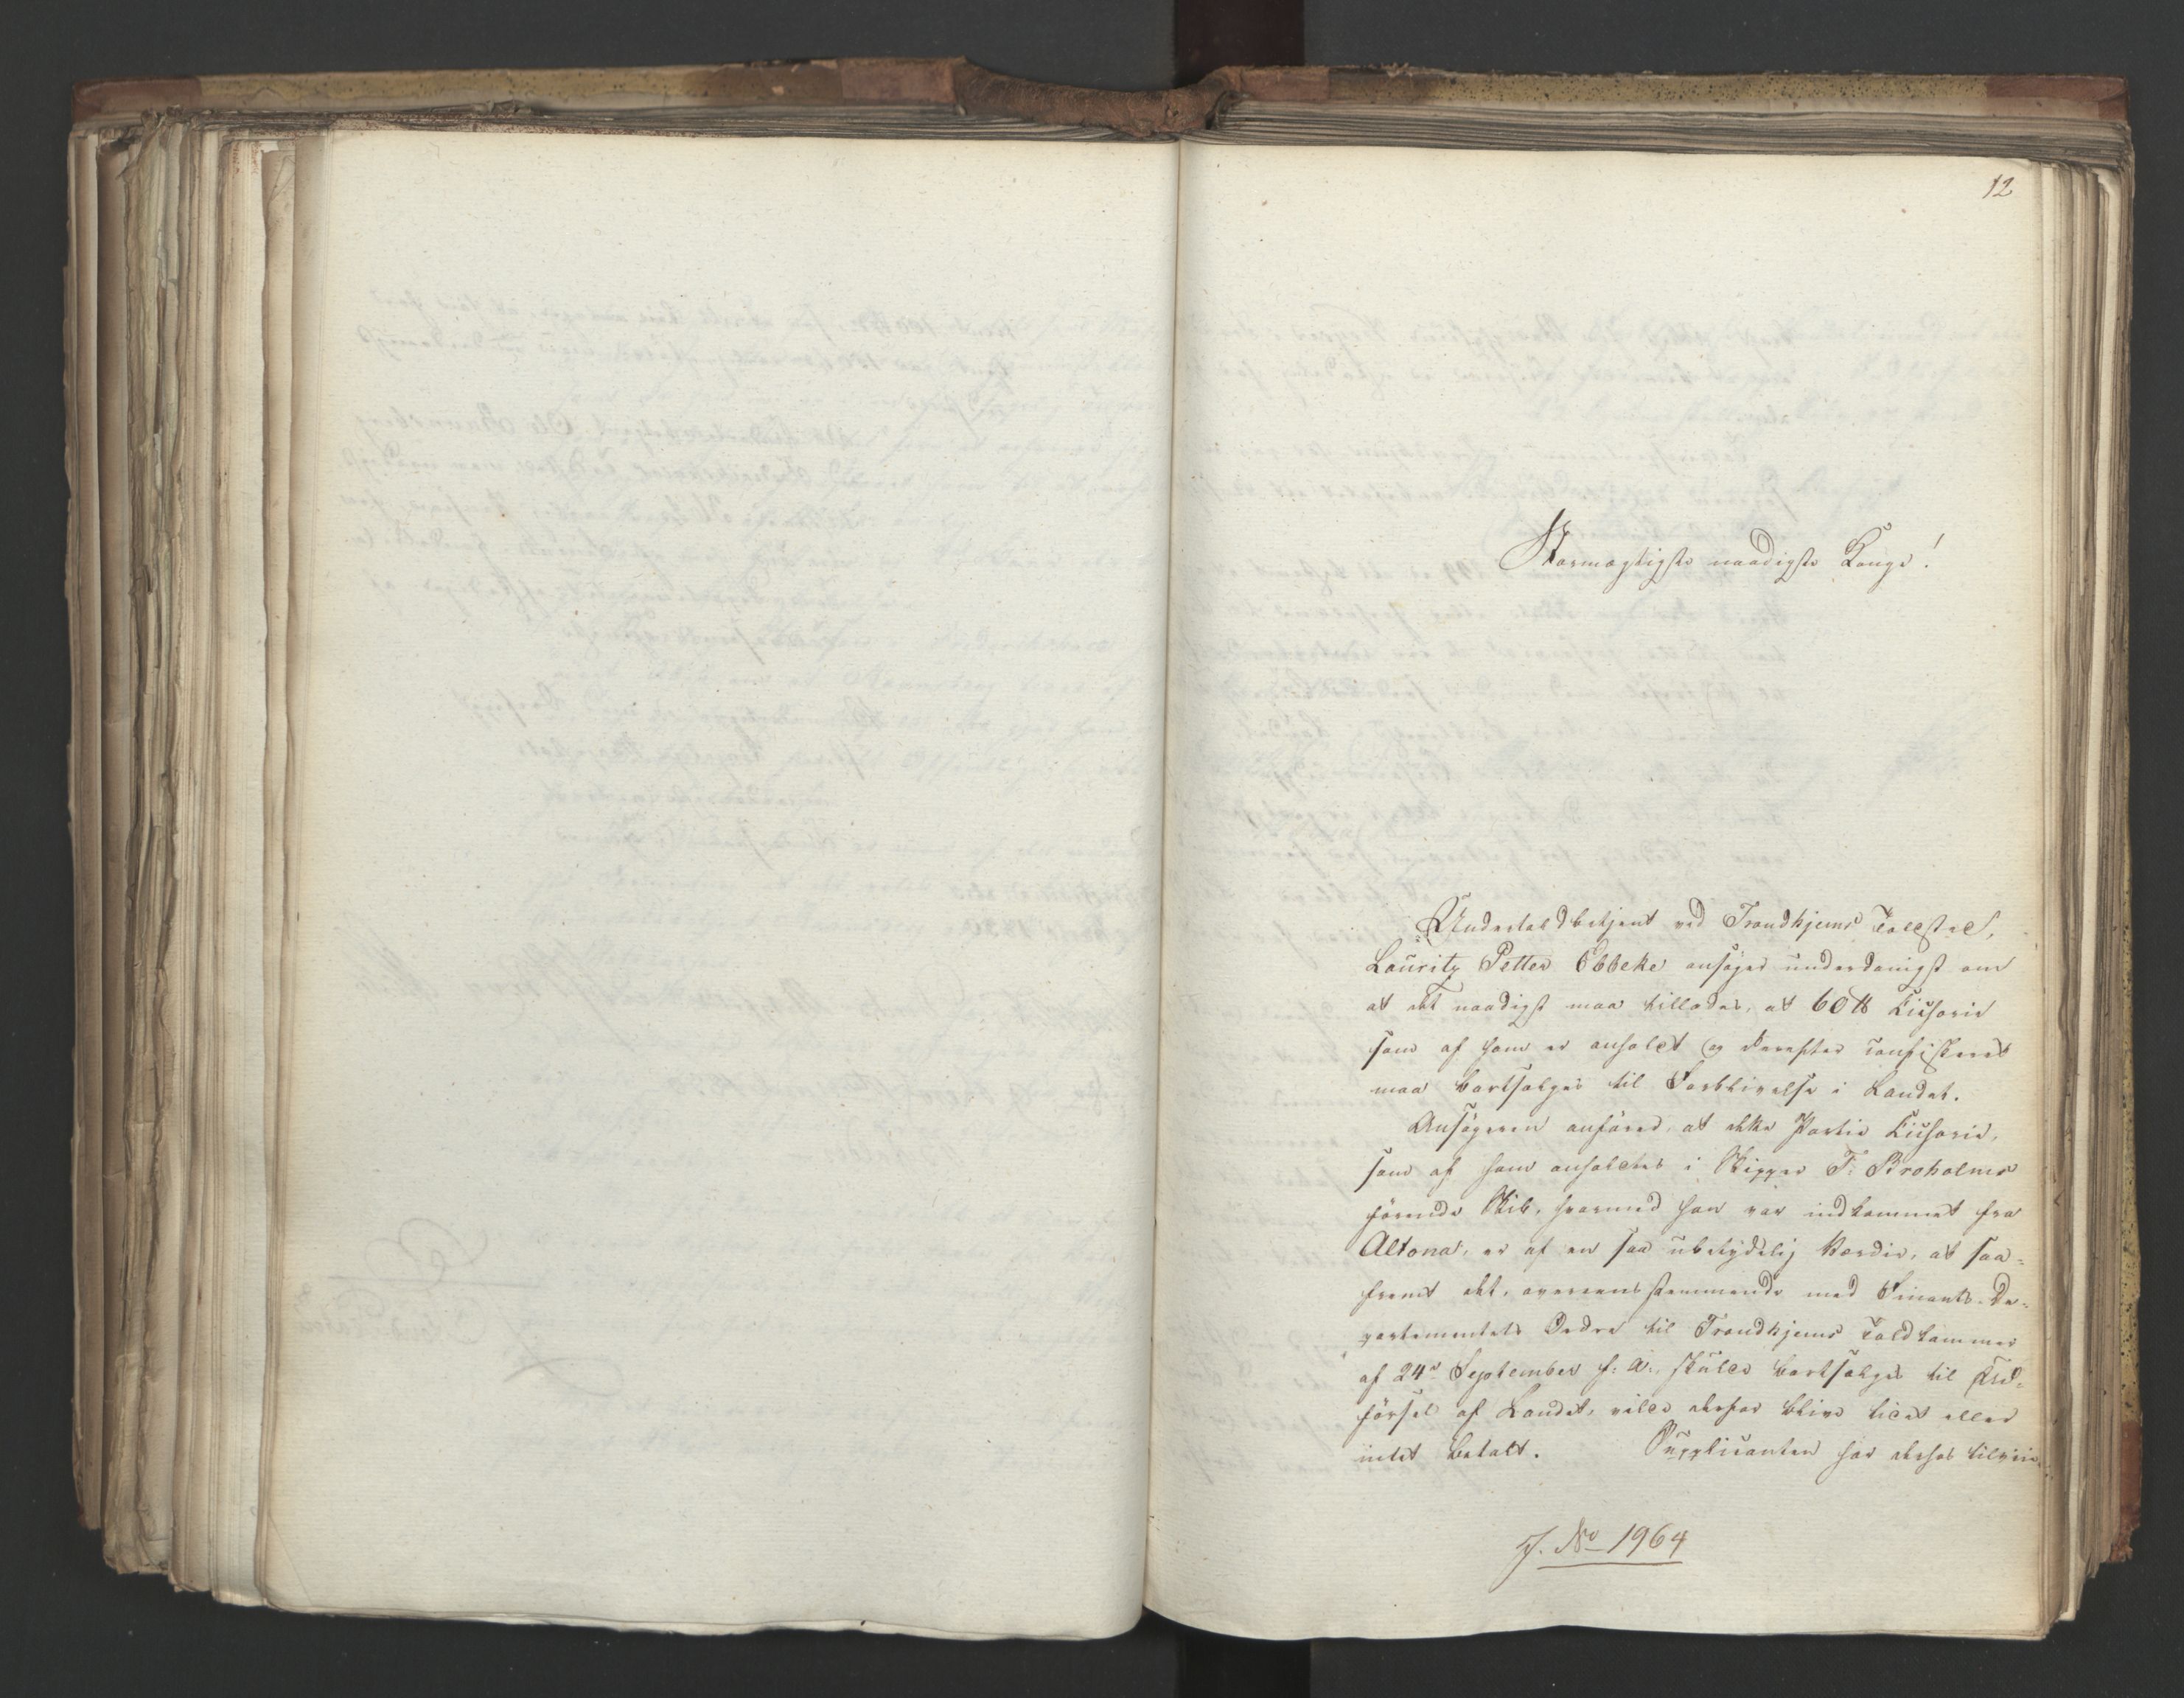 12
Stormægtigste naadigste Konge!
Undertoldbetjent ved Trondhjems Toldsted,
Lauritz Petter Ebbeke ansøger underdanigst om
at det naadigst maa tillades, at 60 ℔ Cichorie
som af ham er anholdt og derefter confiskeret
maa bortsælges til Forblivelse i Landet.
Ansøgeren anfører, at dette Partie Cichorie,
som af ham anholdtes i Skipper T: Broholms
førende Skib, hvormed han var indkommet fra
Altona, er af en saa ubetydelig Værdie, at saa-
fremt det, overeensstemmende med Finants-De-
partementets Ordre til Trondhjems Toldkammer
af 24de September f: A:, skulde bortsælges til Ud-
førsel af Landet, vilde derfor blive lidet eller
intet betalt. Supplicanten har derhos
J. No 1964